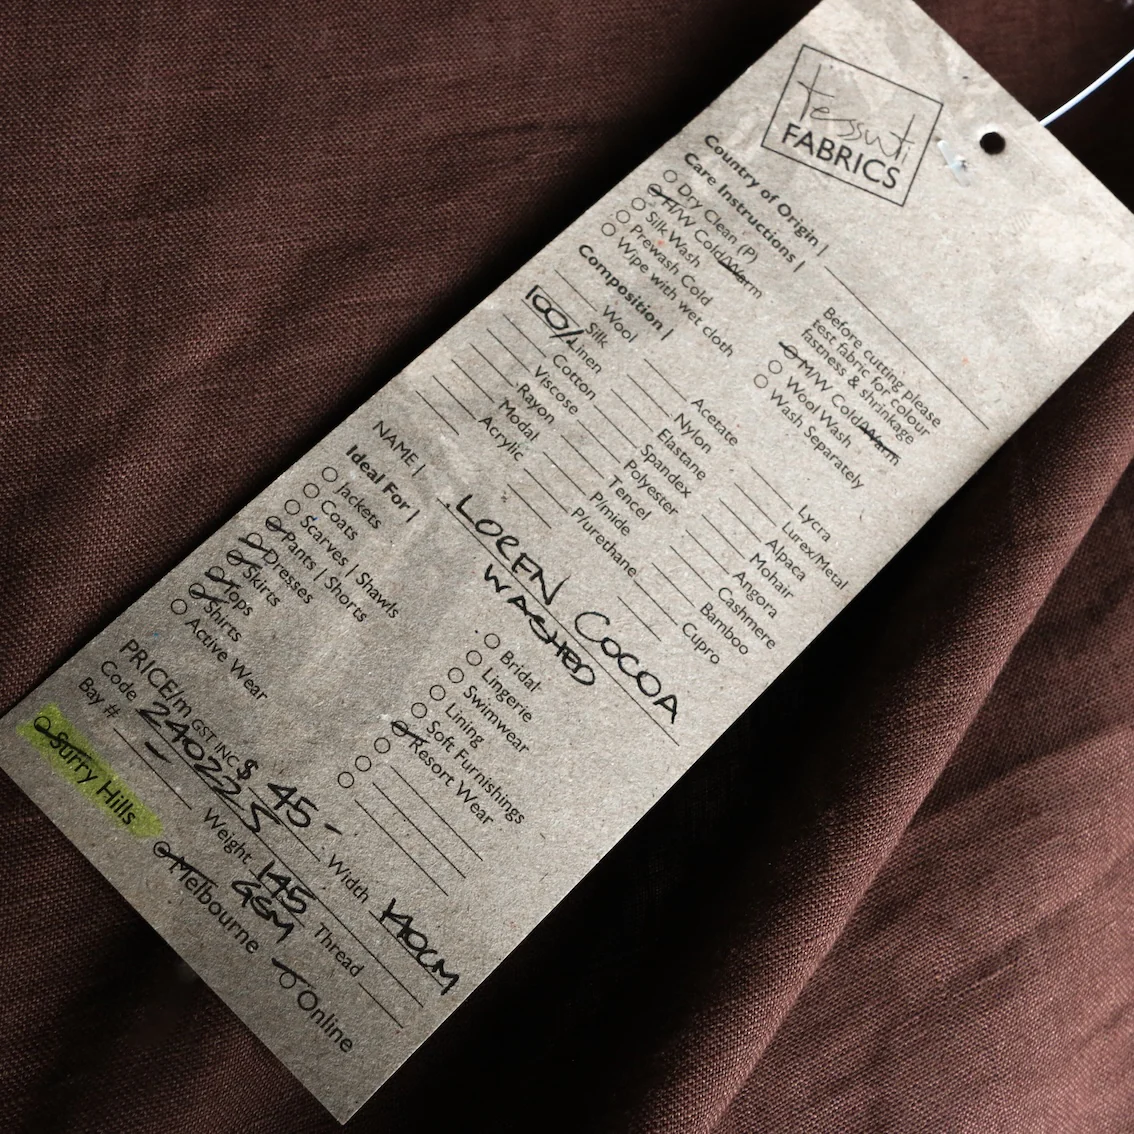 tessuti
FABRICS
Country of Origin |
Care Instructions |
Dry Clean (P)
H/W Cold/Warm
Silk Wash
Prewash Cold
Wipe with wet cloth
Before cutting please
test fabric for colour
fastness & shrinkage
M/W Cold/Warm
Wool Wash
Wash Separately
Composition |
Wool
Silk
100% Linen
Cotton
Viscose
Rayon
Modal
Acrylic
Acetate
Nylon
Elastane
Spandex
Polyester
Tencel
P/mide
P/urethane
Lycra
Lurex/Metal
Alpaca
Mohair
Angora
Cashmere
Bamboo
Cupro
NAME | LOREN COCOA
WASHED
Ideal For |
Jackets
Coats
Scarves | Shawls
Pants | Shorts
Dresses
Skirts
Tops
Shirts
Active Wear
Bridal
Lingerie
Swimwear
Lining
Soft Furnishings
Resort Wear
PRICE/m GST INC $ 45-
Code 240225 Width 140CM
Bay # Weight 145 GSM Thread
Surry Hills Melbourne Online